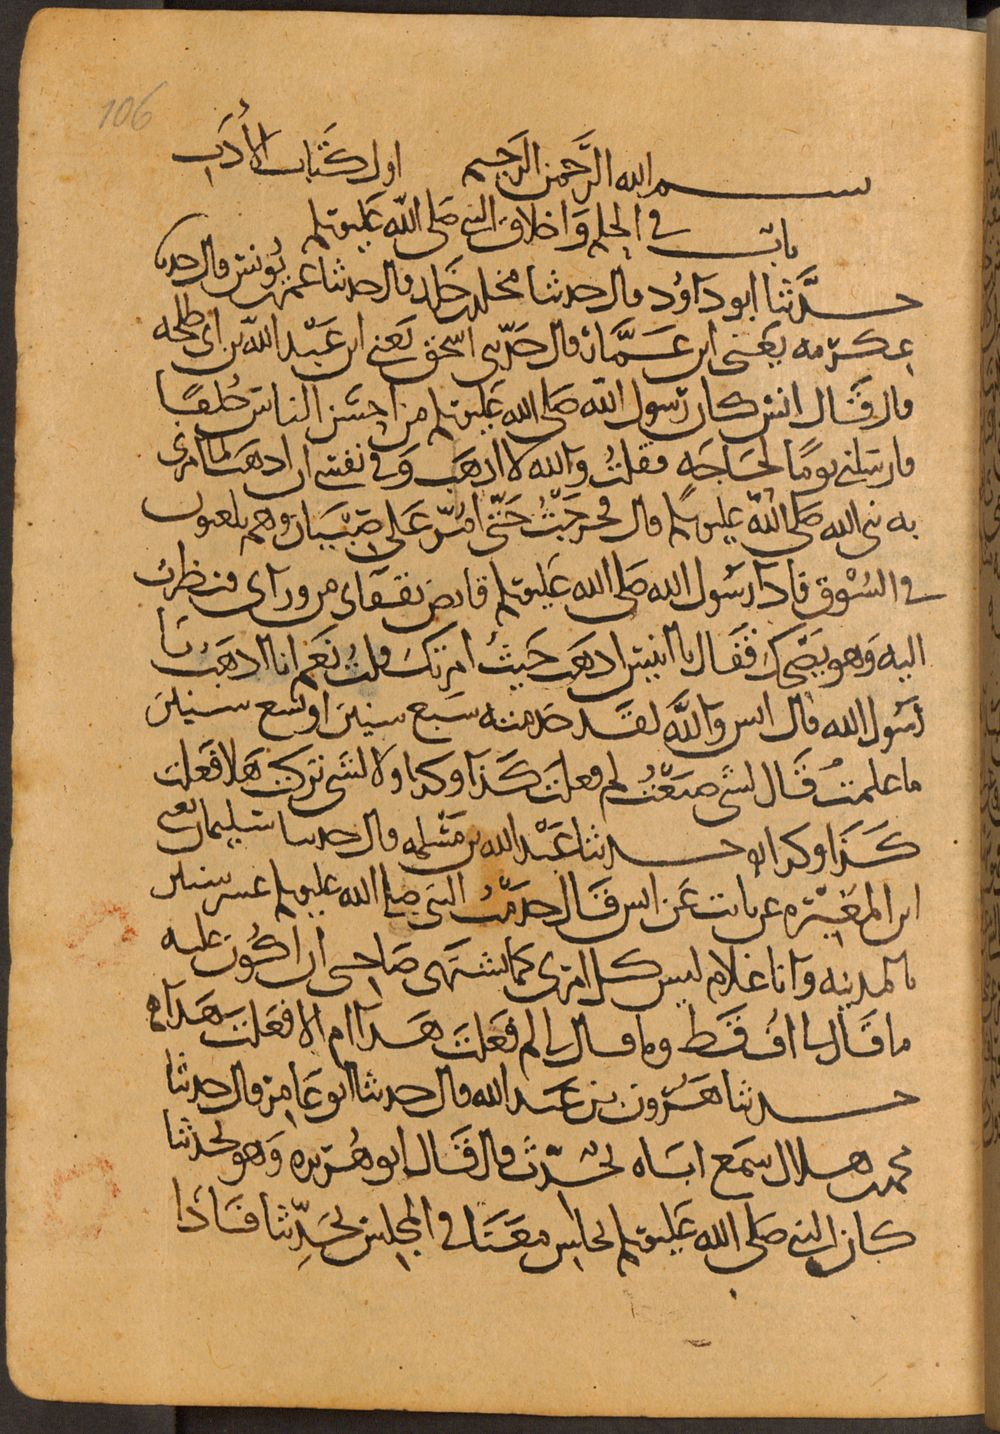 106
بسم الله الرَّحمن الرَّحيم اول كتاب الأدَب
باب في الحلم وَاخلاق النبي صَلى الله عَليه وسلم
حدَّثنا ابو دَاوُد قال حدثنا مخلد بن خَلد قال حدثنا عمر بن يُونس قال حدثنا
عِكرمه يَعني ابن عَمَّار قال حَدّثني اسحق يَعني ابن عَبْد الله بن ابي طلحه
قال قَال انس كان رَسول الله صَلى الله عَليه وسلم من احسَن الناس خُلقًا
فارسَلني يومًا لحَاجَه فقلتُ وَالله لا اذهَب وَفي نفسي ان اذهَب لما امرني
به نبي الله صَلى الله عليه وسلم قال فخرَجتُ حَتّى امُرّ عَلى صِبْيَان وهم يلعبون
في السُوق فاذَا رسُول الله صَلى الله عَليه وسلم قابض بقفاي من وراي فنظرت
اليه وَهو يَضْحَك فَقال يا انيس اذهَب حَيثُ امرتك قلت نَعَم انا اذهَبُ يَا
رَسُول الله قال انس وَاللَّه لقَد خدمته سَبع سنين اَو تسع سنين
ما علمتُ قَال لشي صَنَعْتُ لم فعلت كَذا وكذا ولا لشي تركت هَلا فعَلت
كَذَا وكذا حدثنا عَبْد الله بن مَسْلمه قال حدثنا سُليمان يعني
ابن المغيرَه عن ثابت عَن انس قَال خدمتُ النبي صلى الله عليه وسلم عشر سنين
بالمدينه وَانا غلام ليس كل امري كما يشتهَى صَاحِبي ان اكُون عليه
ما قَال لي اف قَط وما قال لي لم فَعَلت هَذا ام الا فعَلت هَذا
حدثنا هَرُون بن عَبد الله قال حدثنا ابو عَامر قال حدثنا
محمد بن هلال سَمع ابَاه يُحَدّث قال قَال ابو هُريره وَهو يحدثنا
كان النبي صَلى الله عَليه وسلم يجلس معَنَا في المجلس يُحَدِّثنا فَاذَا